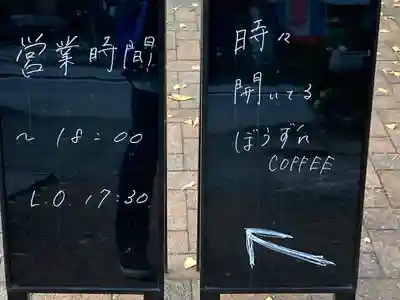 営業時間
〜18:00
L.O. 17:30
時々
開いてる
ぼうず's
COFFEE